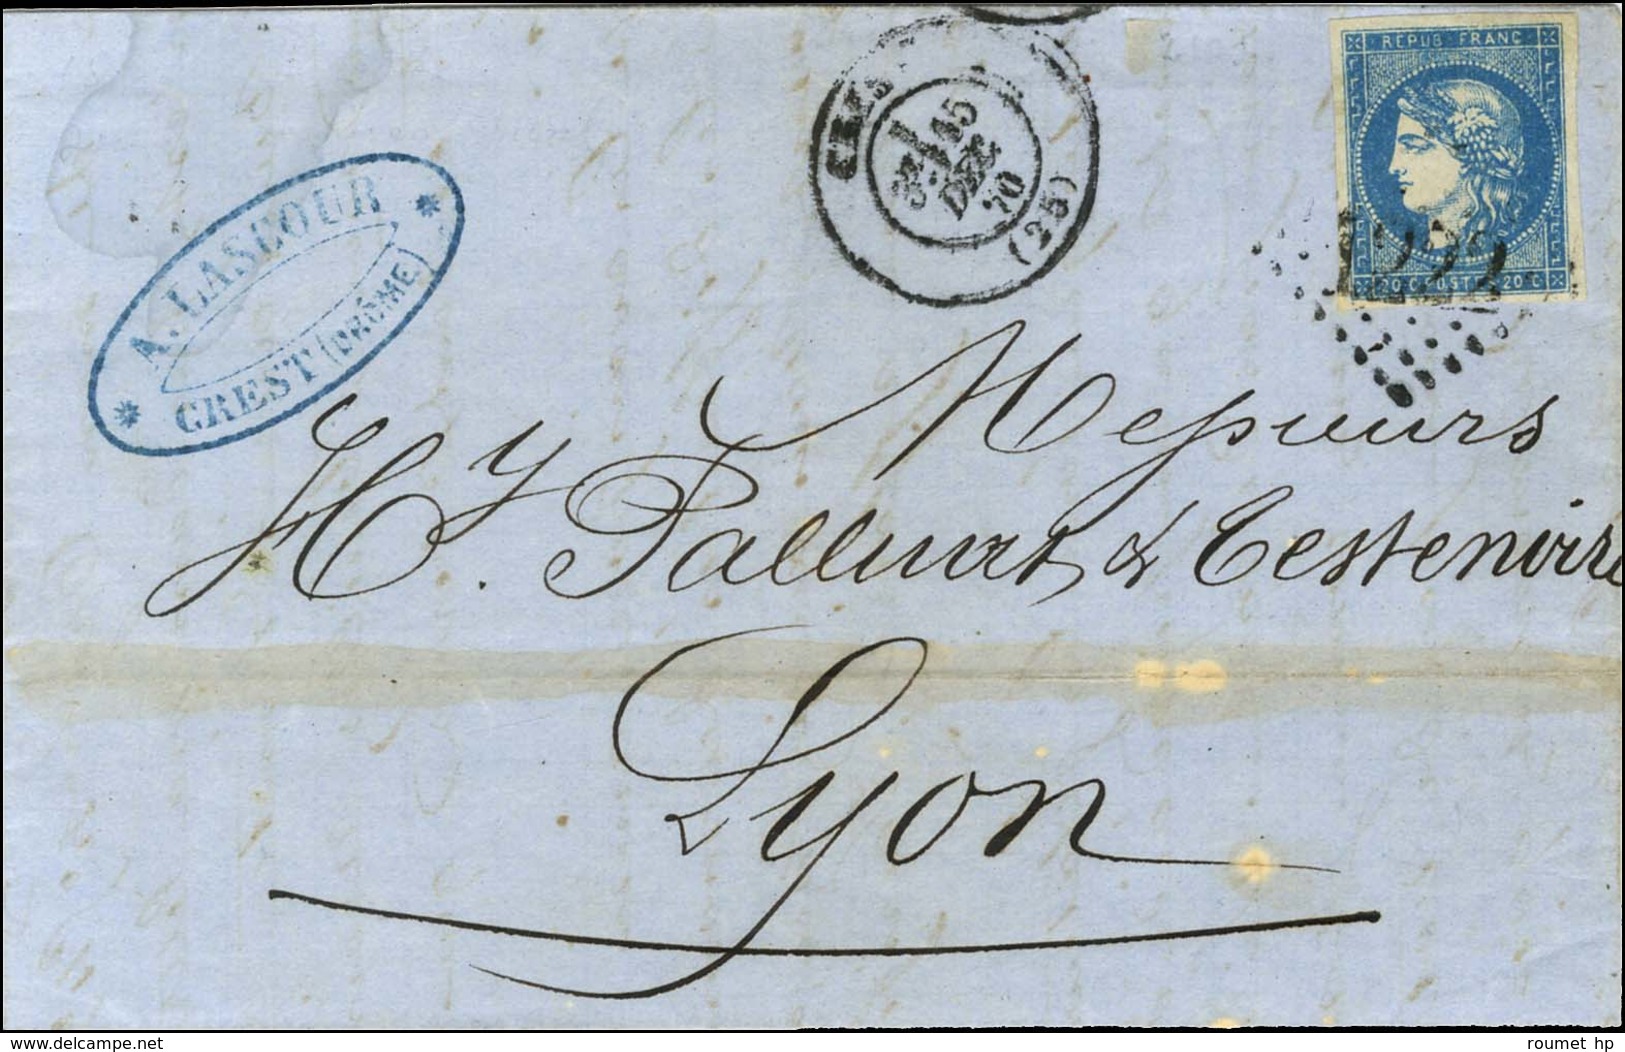 REPUB FRANC
20 C POSTE 20 C
1222
CREST
3E 15
DEC
70
(25)
A. LASCOUR
CREST (DRÔME)
Messieurs
Hy. Palluat & Testenoire
Lyon
delcampe.net
roumet hp